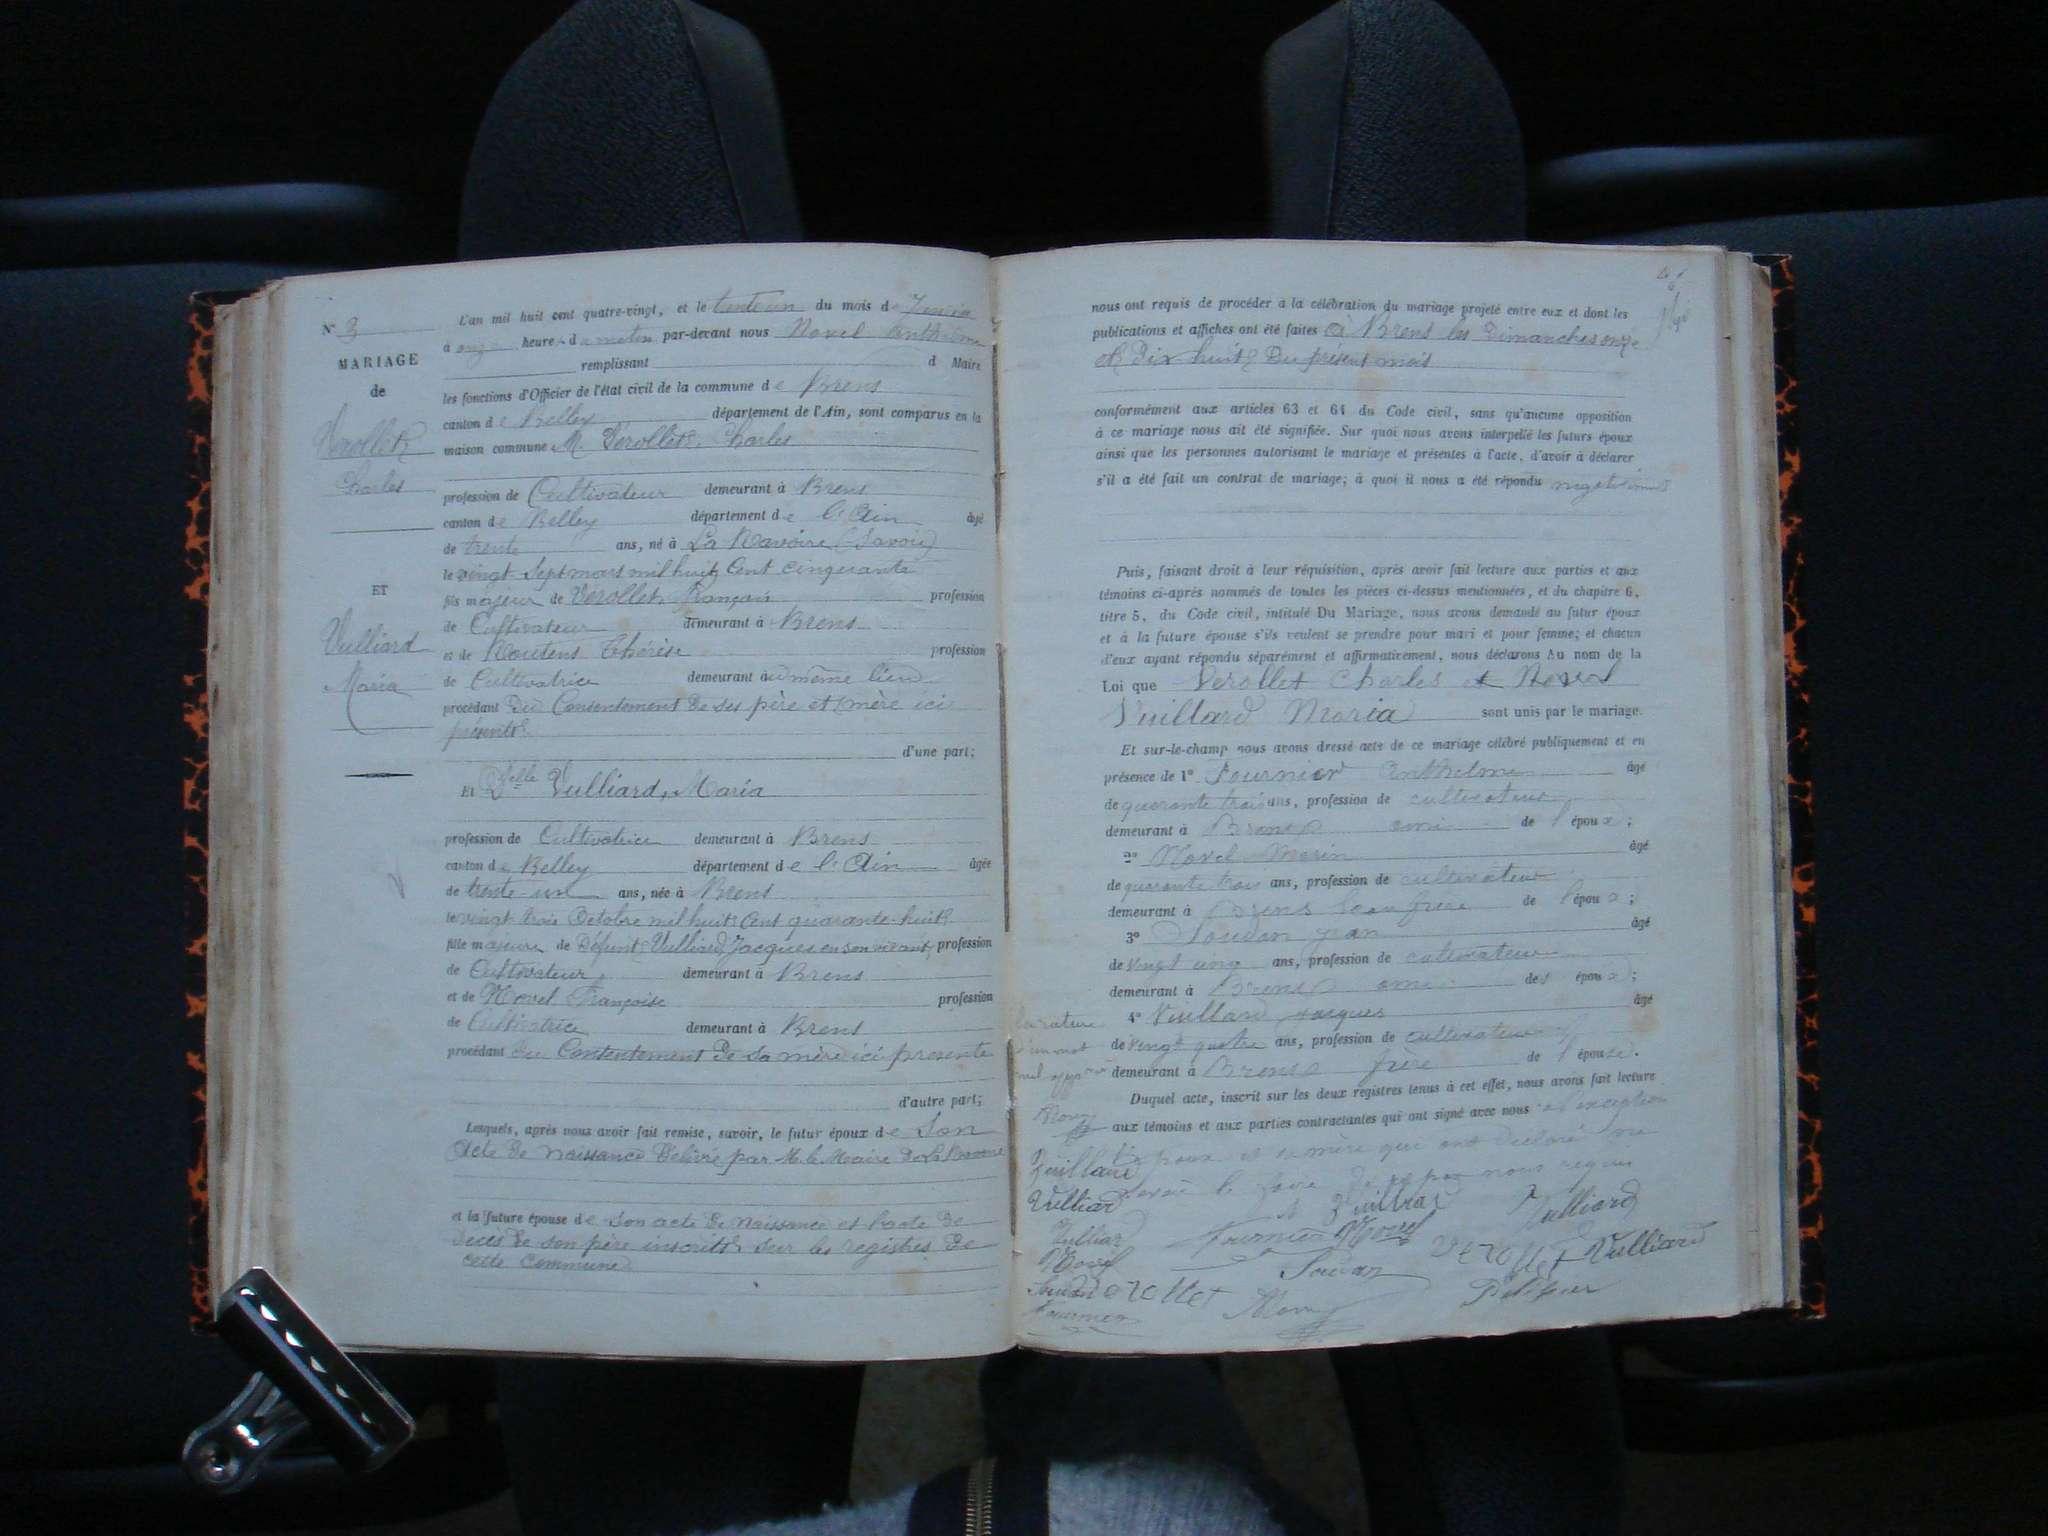 N° 3
MARIAGE
de
Verollet
Charles
ET
Vulliard
Maria
L'an mil huit cent quatre-vingt, et le trente un du mois de Janvier
à onze heures du matin par-devant nous Novel Anthelme
remplissant d Maire
les fonctions d'Officier de l'état civil de la commune de Brens
canton de Belley département de l'Ain, sont comparus en la
maison commune M. Verollet Charles
profession de Cultivateur demeurant à Brens
canton de Belley département de l'Ain âgé
de trente ans, né à La Ravoire (Savoie)
le vingt Sept mars mil huit Cent cinquante
fils majeur de Verollet François profession
de Cultivateur demeurant à Brens
et de Thérèse profession
de Cultivatrice demeurant au même lieu
procédant du Consentement de ses père et mère ici
présents
d'une part;
Et Delle Vulliard, Maria
profession de Cultivatrice demeurant à Brens
canton de Belley département de l'Ain âgée
de trente-un ans, née à Brens
le vingt trois Octobre mil huit Cent quarante-huit
fille majeure de Défunt Vulliard Jacques en son vivant, profession
de Cultivateur demeurant à Brens
et de Novel Françoise profession
de Cultivatrice demeurant à Brens
procédant du Consentement de sa mère ici présente
d'autre part;
Lesquels, après nous avoir fait remise, savoir, le futur époux de Son
Acte de naissance Délivré par M. le Maire de La Ravoire
et la future épouse de son acte de naissance et l'acte de
décès de son père inscrits sur les registres de
cette commune
nous ont requis de procéder à la célébration du mariage projeté entre eux et dont les
publications et affiches ont été faites à Brens les Dimanches onze
et Dix-huit Du présent mois
conformément aux articles 63 et 64 du Code civil, sans qu'aucune opposition
à ce mariage nous ait été signifiée. Sur quoi nous avons interpellé les futurs époux
ainsi que les personnes autorisant le mariage et présentes à l'acte, d'avoir à déclarer
s'il a été fait un contrat de mariage; à quoi il nous a été répondu négativement
Puis, faisant droit à leur réquisition, après avoir fait lecture aux parties et aux
témoins ci-après nommés de toutes les pièces ci-dessus mentionnées, et du chapitre 6,
titre 5, du Code civil, intitulé Du Mariage, nous avons demandé au futur époux
et à la future épouse s'ils veulent se prendre pour mari et pour femme; et chacun
d'eux ayant répondu séparément et affirmativement, nous déclarons Au nom de la
Loi que Verollet Charles et Novel
Vuillard Maria sont unis par le mariage.
Et sur-le-champ nous avons dressé acte de ce mariage célébré publiquement et en
présence de 1° Fournier Anthelme âgé
de quarante trois ans, profession de cultivateur
demeurant à Brens ami de l'époux;
2° Novel Marin âgé
de quarante trois ans, profession de cultivateur
demeurant à Brens beau frère de l'époux;
3° Soudan jean âgé
de vingt cinq ans, profession de cultivateur
demeurant à Brens ami des époux;
4° Vuillard Jacques âgé
de vingt quatre ans, profession de cultivateur
demeurant à Brens frère de l'épouse.
Duquel acte, inscrit sur les deux registres tenus à cet effet, nous avons fait lecture
aux témoins et aux parties contractantes qui ont signé avec nous à l'exception
époux et sa mère qui ont déclaré ne
savoir le faire de ce par nous requis
la rature
d'un mot
nul
Vulliard
Vulliard
Novel
Soudan
Verollet
Fournier
Fournier Novel
Soudan
Verollet
Vulliard
Vulliard